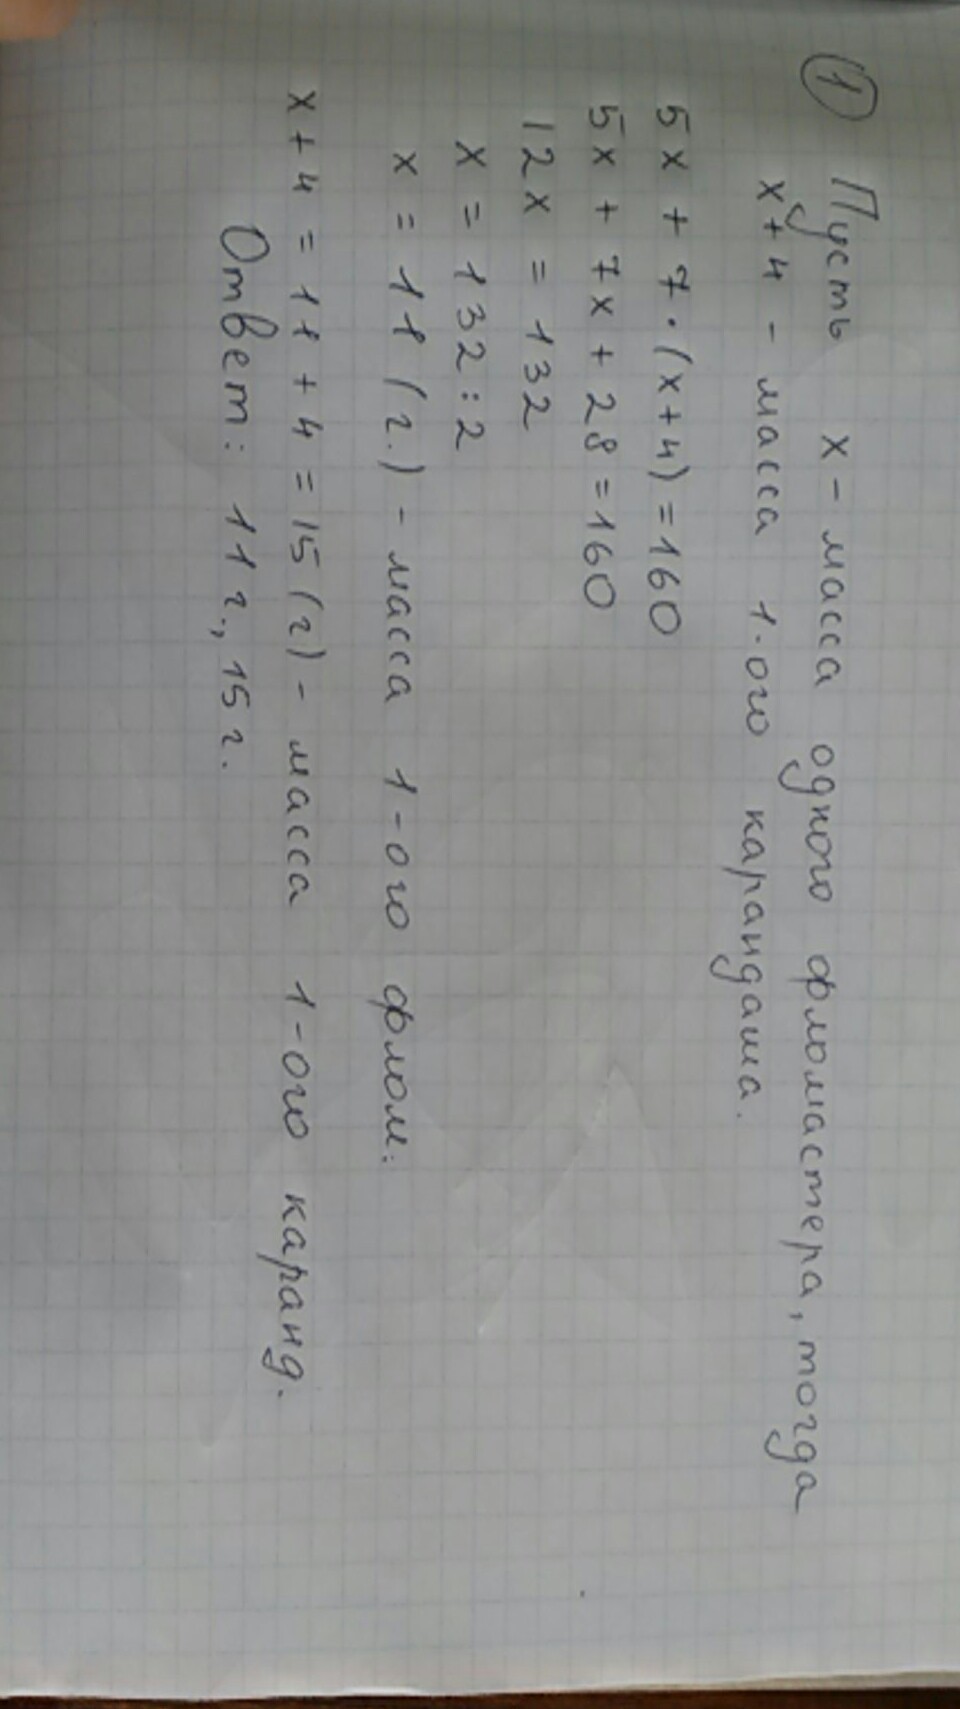 1 Пусть х - масса одного фломастера, тогда
х+4 - масса 1-ого карандаша.
5х + 7·(х+4) = 160
5х + 7х + 28 = 160
12х = 132
х = 132 : 2
х = 11 (г.) - масса 1-ого флом.
х + 4 = 11 + 4 = 15 (г) - масса 1-ого каранд.
Ответ: 11 г., 15 г.